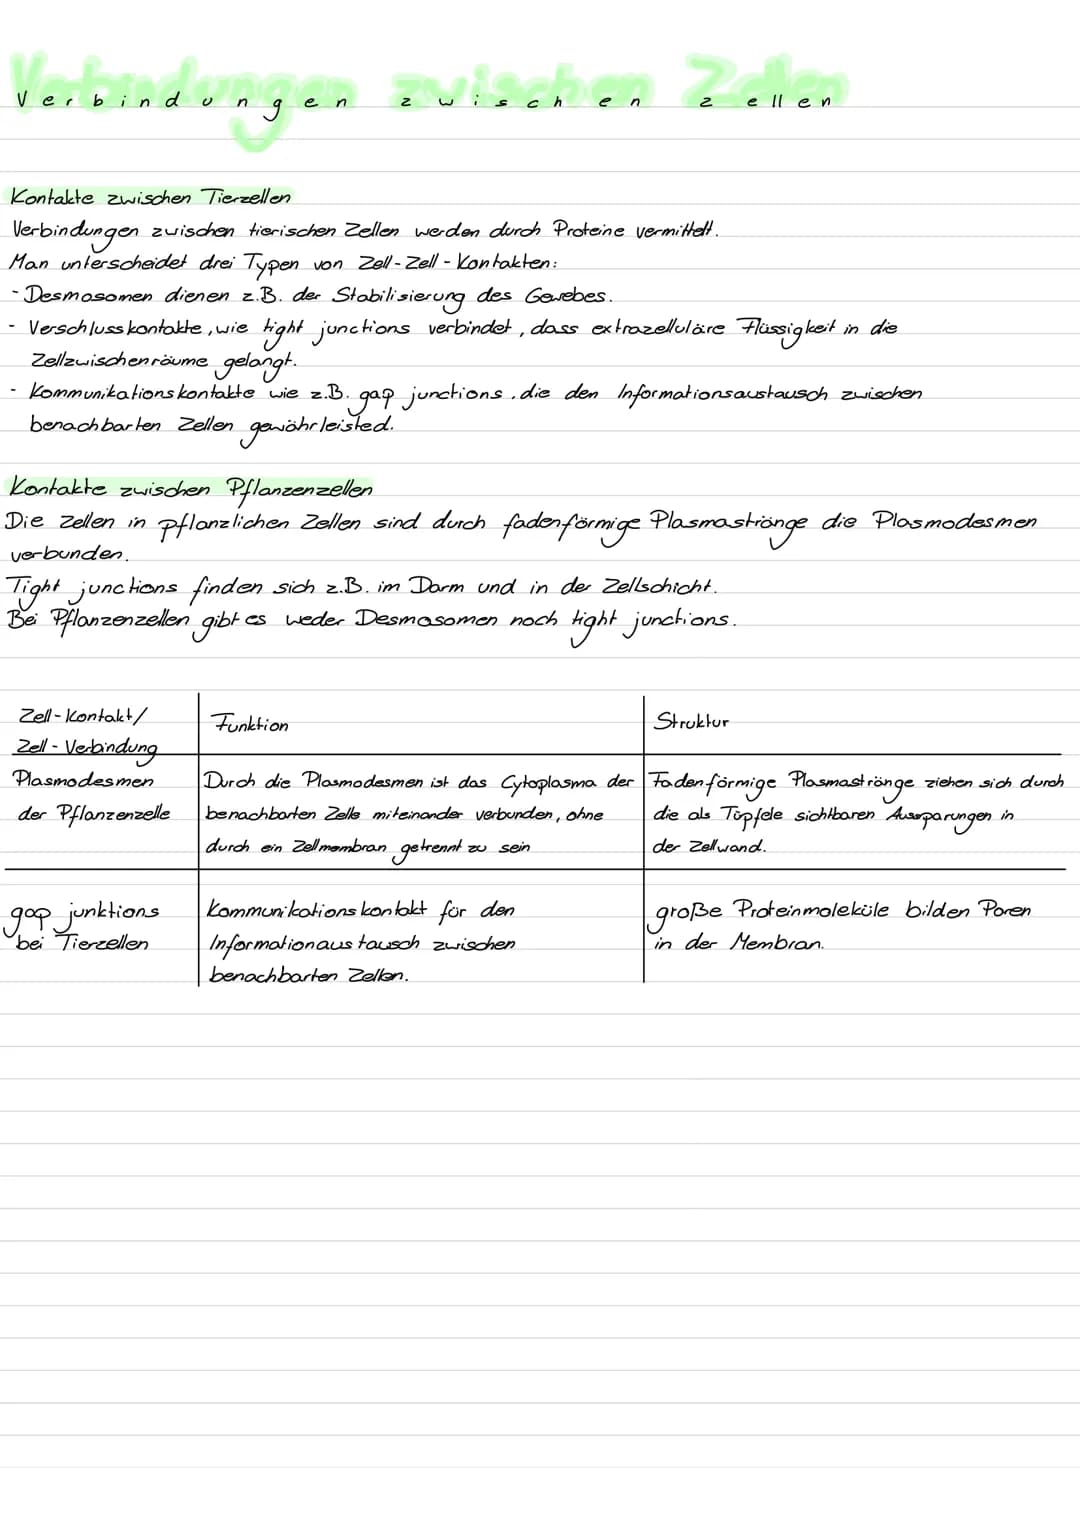 Verbindungen zwischen Zellen
Kontakte zwischen Tierzellen
Verbindungen zwischen tierischen Zellen werden durch Proteine vermittelt.
Man unterscheidet drei Typen von Zell-Zell-Kontakten:
- Desmosomen dienen z.B. der Stabilisierung des Gewebes.
- Verschlusskontakte, wie tight junctions verbindet, dass extrazelluläre Flüssigkeit in die
Zellzwischenräume gelangt.
- Kommunikationskontakte wie z.B. gap junctions, die den Informationsaustausch zwischen
benachbarten Zellen gewährleisted.
Kontakte zwischen Pflanzenzellen
Die Zellen in pflanzlichen Zellen sind durch fadenförmige Plasmastränge die Plasmodesmen
verbunden.
Tight junctions finden sich z.B. im Darm und in der Zellschicht.
Bei Pflanzenzellen gibt es weder Desmosomen noch tight junctions.
Zell-Kontakt/
Zell-Verbindung
Funktion
Struktur
Plasmodesmen
der Pflanzenzelle
Durch die Plasmodesmen ist das Cytoplasma der
benachbarten Zelle miteinander verbunden, ohne
durch ein Zellmembran getrennt zu sein
Fadenförmige Plasmastränge ziehen sich durch
die als Tüpfele sichtbaren Aussparungen in
der Zellwand.
gap junktions
bei Tierzellen
Kommunikationskontakt für den
Informationaustausch zwischen
benachbarten Zellen.
große Proteinmoleküle bilden Poren
in der Membran.